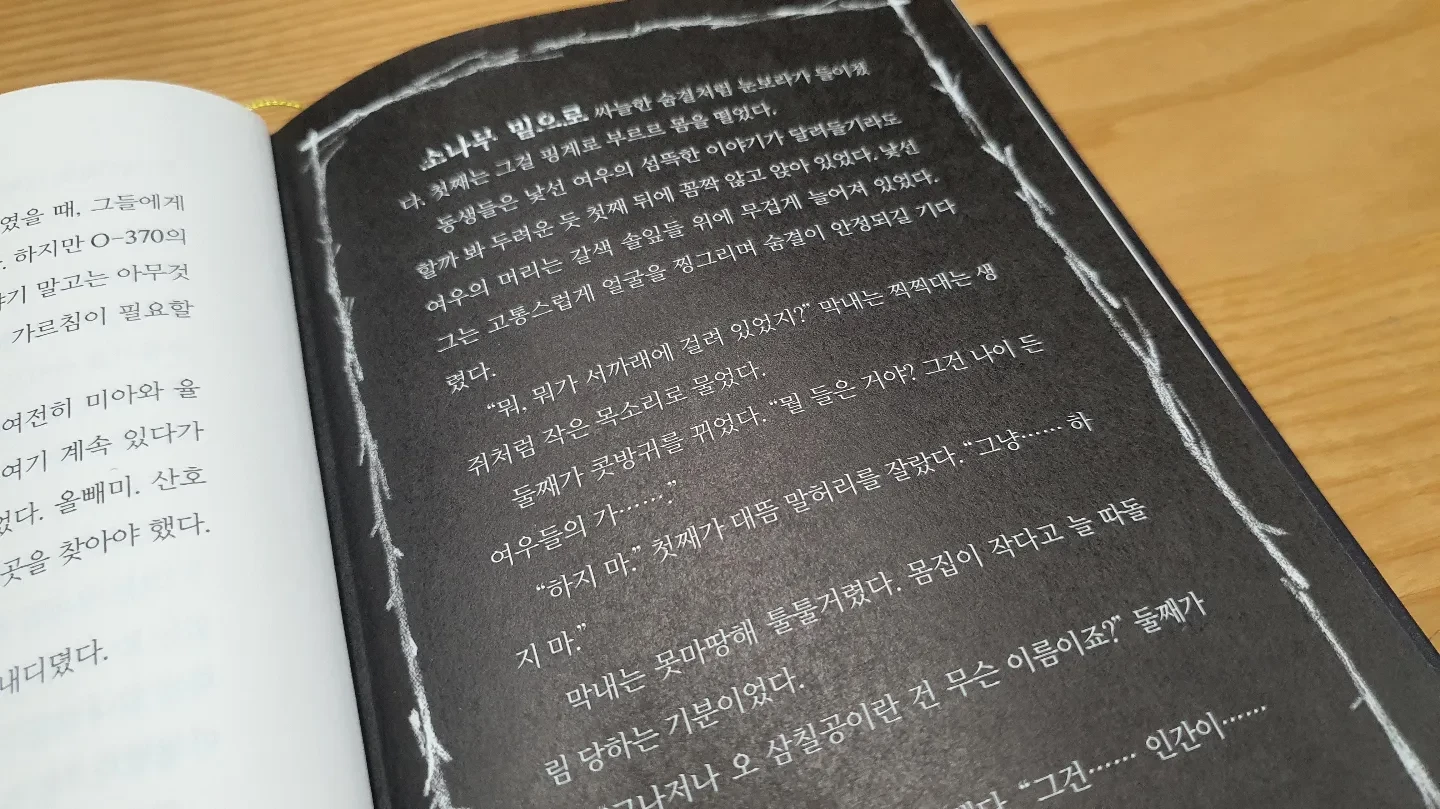 였을 때, 그들에게
하지만 O-370의
말고는 아무것
가르침이 필요할
여전히 미아와 율
여기 계속 있다가
올빼미. 산호
곳을 찾아야 했다.
내디뎠다.
소나무 밑으로 싸늘한 숨결처럼 눈보라가 들이쳤
다. 첫째는 그걸 핑계로 부르르 몸을 떨었다.
동생들은 낯선 여우의 섬뜩한 이야기가 달려들기라도
할까 봐 두려운 듯 첫째 뒤에 꼼짝 않고 앉아 있었다. 낯선
여우의 머리는 갈색 솔잎들 위에 무겁게 늘어져 있었다.
그는 고통스럽게 얼굴을 찡그리며 숨결이 안정되길 기다
렸다.
“뭐, 뭐가 서까래에 걸려 있었지?” 막내는 찍찍대는 생
쥐처럼 작은 목소리로 물었다.
둘째가 콧방귀를 뀌었다. “뭘 들은 거야? 그건 나이 든
여우들의 가…….”
“하지 마.” 첫째가 대뜸 말허리를 잘랐다. “그냥…… 하
지 마.”
막내는 못마땅해 툴툴거렸다. 몸집이 작다고 늘 따돌
림 당하는 기분이었다.
“그나저나 오 삼칠공이란 건 무슨 이름이죠?” 둘째가
“그건…… 인간이……